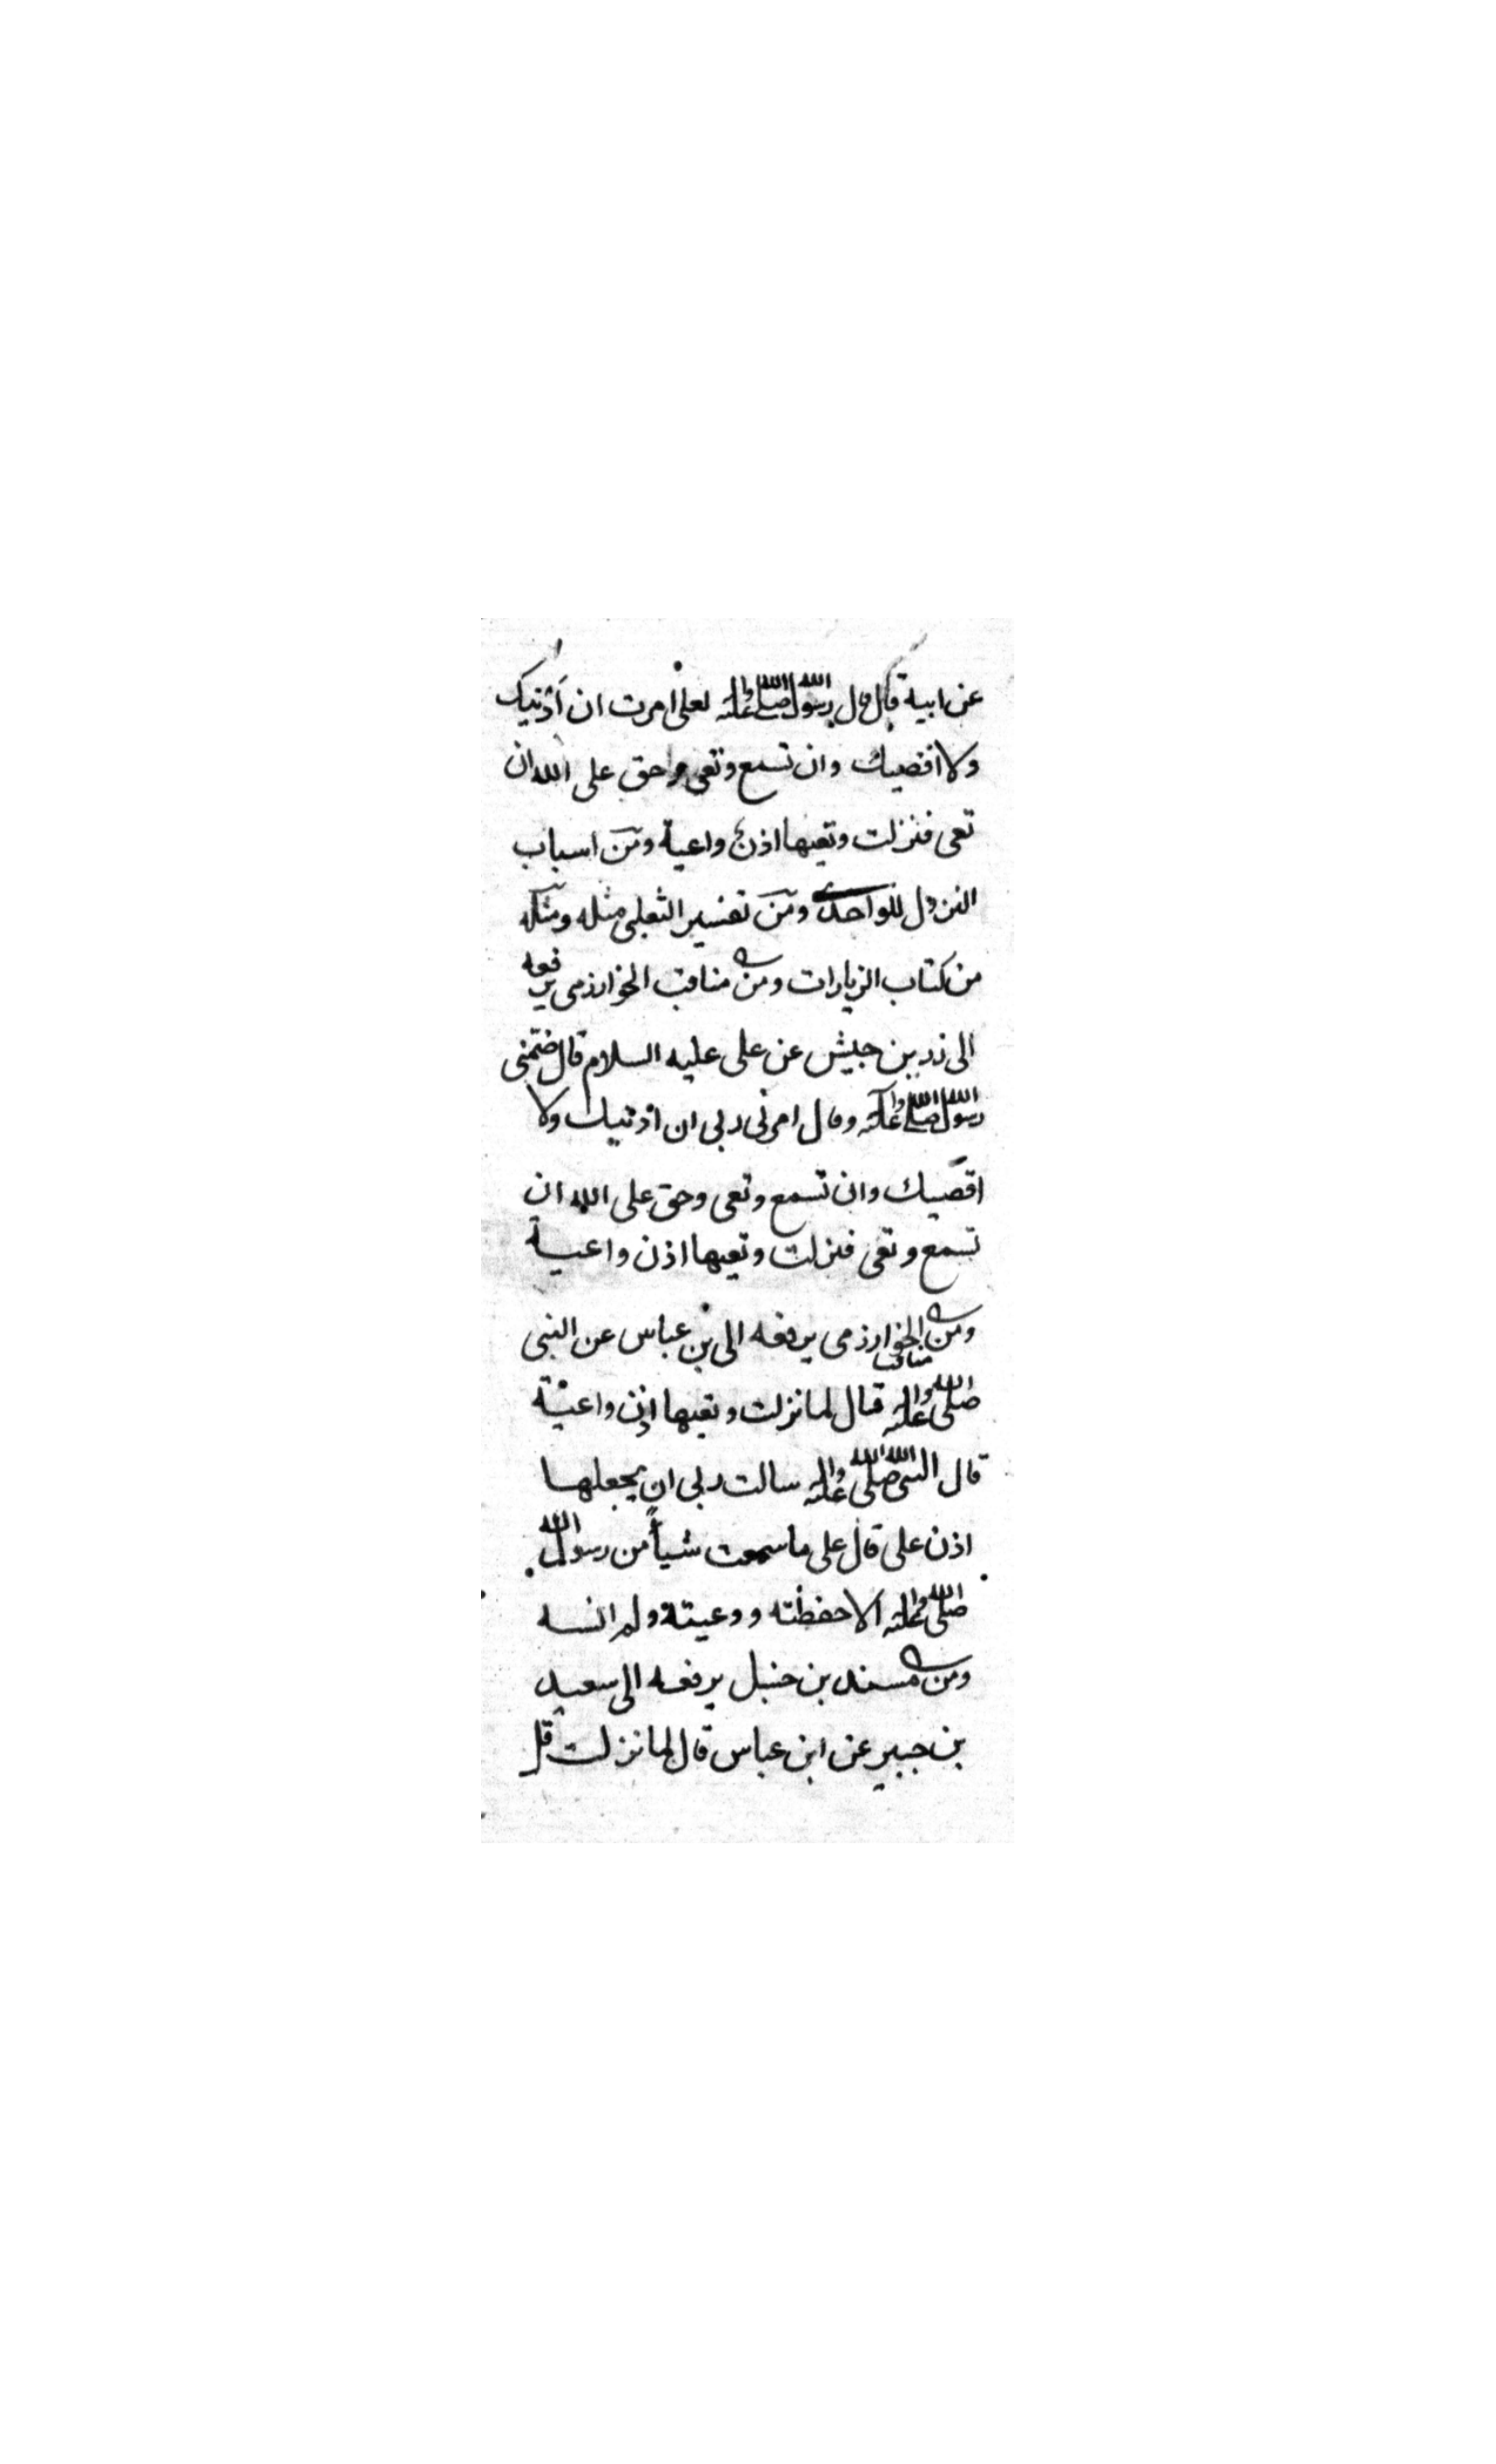 عن ابية قال قال رسول الله صلى الله عليه واله لعلى امرت ان أذنيك
ولا اقصيك وان تسمع وتعى وحق على الله ان
تعى فنزلت وتعيها اذن واعية ومن اسباب
النزول للواحدى ومن تفسير الثعلبى مثله ومثله
من كتاب الزيارات ومن مناقب الخوارزمى يرفعه
الى زر بن حبيش عن على عليه السلام قال ضمنى
رسول الله صلى الله عليه وآله وقال امرنى ربى ان اذنيك ولا
اقصيك وان تسمع وتعى وحق على الله ان
تسمع وتعى فنزلت وتعيها اذن واعية
ومن مناقب الخوارزمى يرفعه الى بن عباس عن النبى
صلى الله عليه واله قال لما نزلت وتعيها اذن واعية
قال النبى صلى الله عليه واله سالت ربى ان يجعلها
اذن على قال على ما سمعت شيأ من رسول الله
صلى الله عليه واله الا حفظته ووعيتة ولم انسه
ومن مسند بن حنبل يرفعه الى سعيد
بن جبير عن ابن عباس قال لما نزلت قل